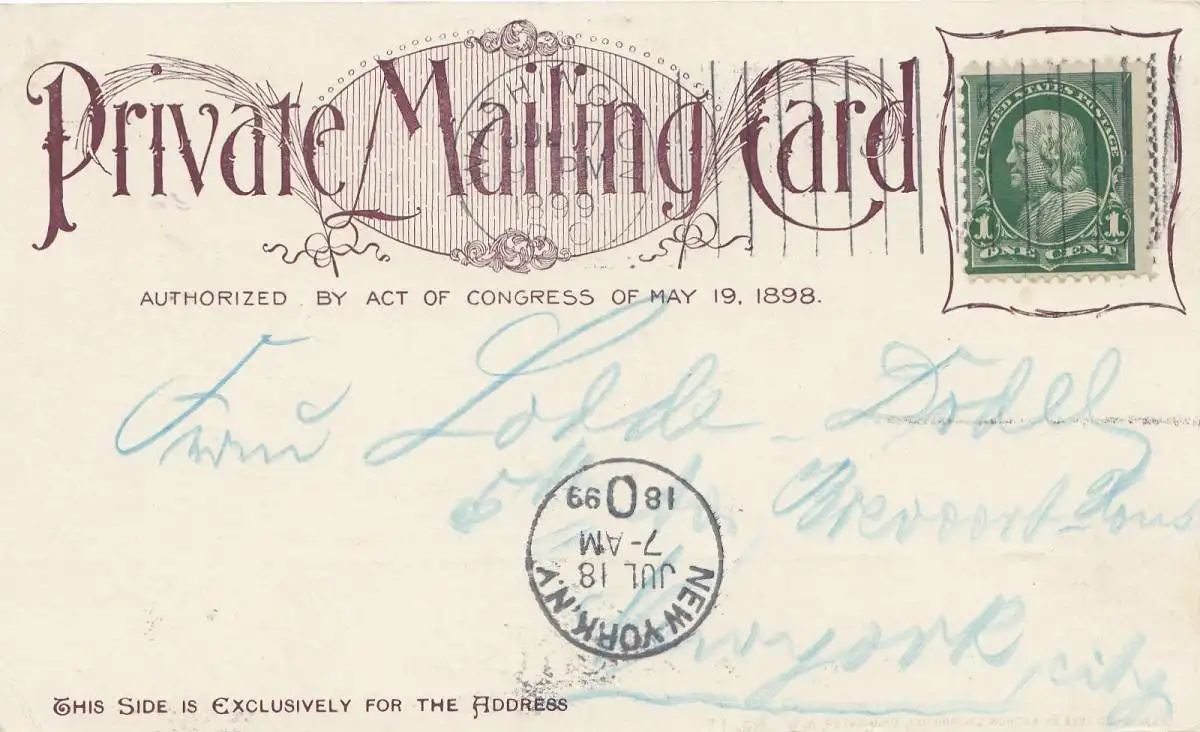 Private Mailing Card
AUTHORIZED BY ACT OF CONGRESS OF MAY 19, 1898.
UNITED STATES POSTAGE
1 1
ONE CENT
HING
1899
Frau
Brevoort-Hous
Newyork
city
NEW YORK, N.Y.
JUL 18
7-AM
18 O 99
THIS SIDE IS EXCLUSIVELY FOR THE ADDRESS